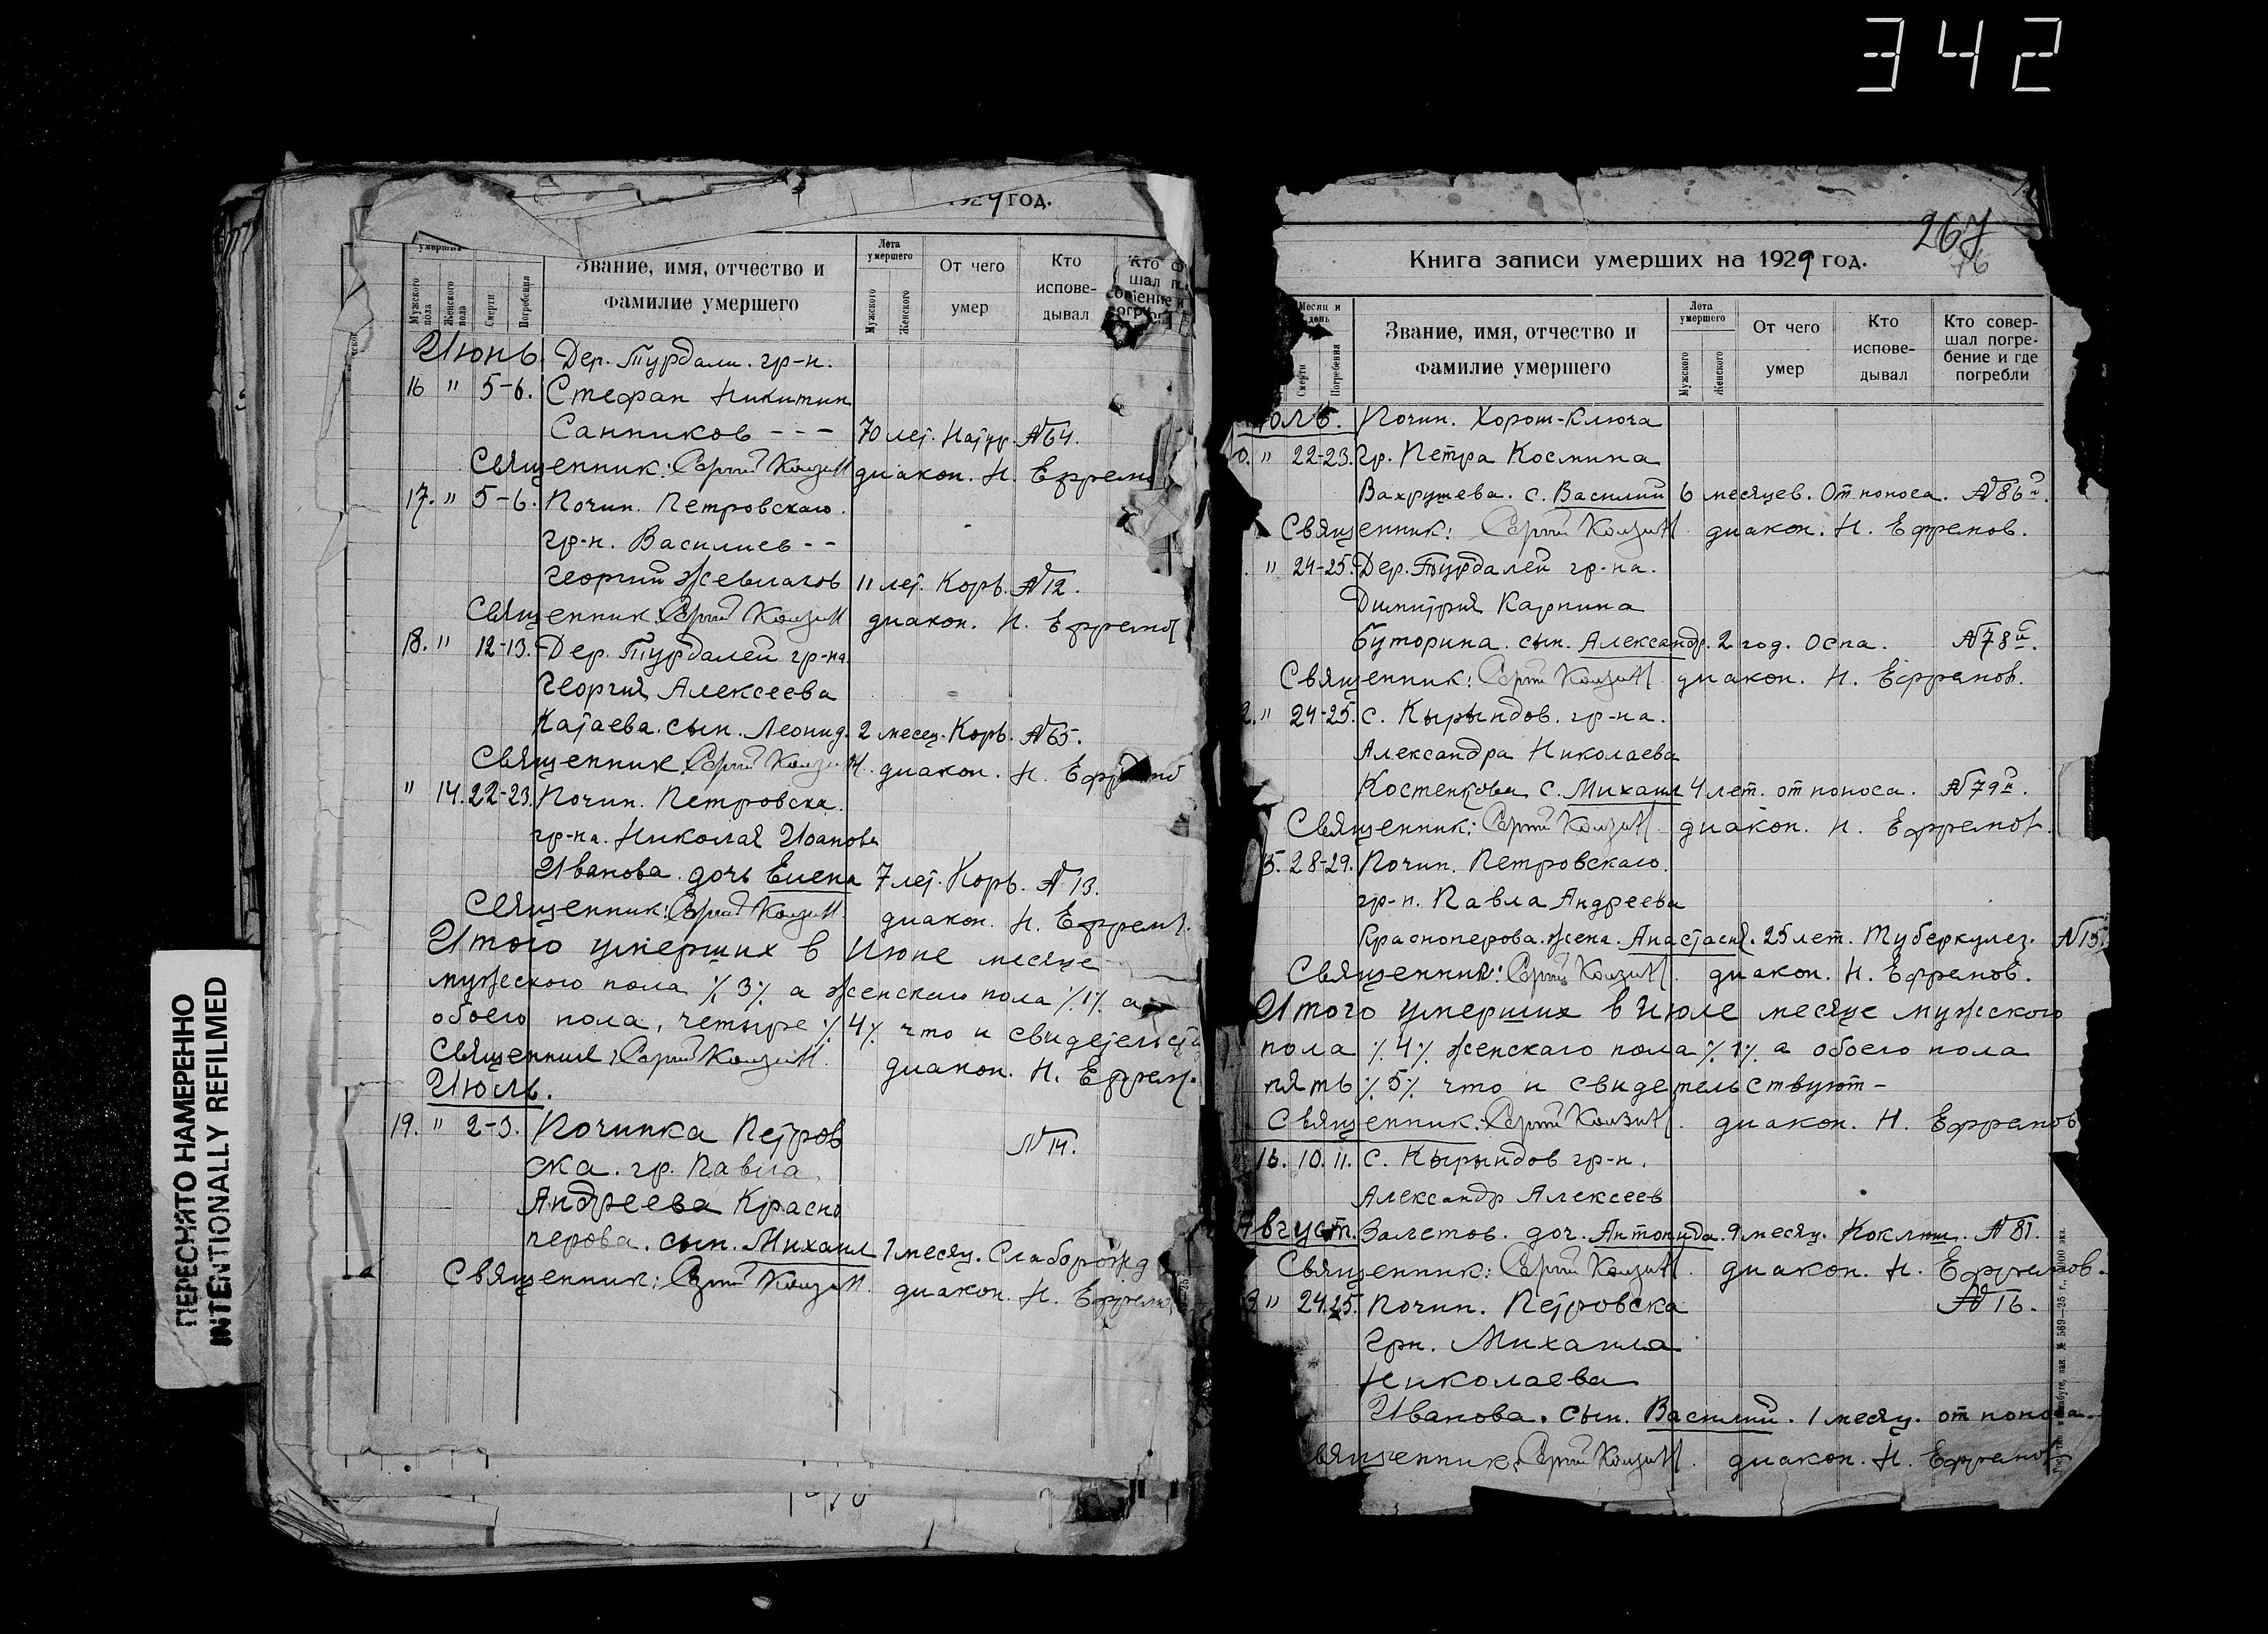 342
ПЕРЕСНЯТО НАМЕРЕННО
INTENTIONALLY REFILMED
1929 год.
умерших
Мужского пола
Женского пола
Смерти
Погребения
Звание, имя, отчество и
фамилие умершего
Лета
умершего
Мужского
Женского
От чего
умер
Кто
испове-
дывал
Июнь Дер. Турдали. гр-н.
16 " 5-6. Стефан Никитин
Санников - - - 70 лет. Натур. №64.
Священник: Сергий диакон. Н. Ефремов
17. " 5-6. Почин. Петровскаго.
гр-н. Василиев - -
Георгий Жевлагов 11 лет. Корь. №12.
Священник Сергий диакон. Н. Ефремов
18. " 12-13. Дер. Турдалей гр-на
Георгия Алексеева
Катаева. сын. Леонид. 2 месец. Корь. №65.
Священник Сергий диакон. Н. Ефремов
" 14. 22-23. Почин. Петровска.
гр-на. Николая Иванова
Иванова. дочь Елена 7 лет. Корь. №13.
Священник: Сергий диакон. Н. Ефремов.
Итого умерших в Июне месяце
мужеского пола ٪ 3 ٪ а женскаго пола ٪ 1 ٪ а
обоего пола, четыре ٪ 4 ٪ что и свидетельст
Священник: Сергий диакон. Н. Ефремов.
Июль.
19. " 2-3. Починка Петров
№ 14.
ска. гр. Павла
Андреева Красно
перова. сын. Михаил 1 месяц. Слаборожд
Священник: Сергий диакон. Н. Ефремов
267
76
Книга записи умерших на 1929 год.
Месяц и
день
Смерти
Погребения
Звание, имя, отчество и
фамилие умершего
Лета
умершего
Мужского
Женского
От чего
умер
Кто
испове-
дывал
Кто совер-
шал погре-
бение и где
погребли
юль. Почин. Хорош-Ключа
0. " 22-23. гр. Петра Космина
Вахрушева. с. Василий 6 месяцев. От поноса. №86й.
Священник: Сергий диакон. Н. Ефремов.
" 24-25. Дер. Турдалей гр-на.
Димитрия Карпина
Буторина. сын. Александр. 2 год. Оспа. №78й.
Священник: Сергий диакон. Н. Ефремов.
2. " 24-25. с. Кырындов. гр-на.
Александра Николаева
Костенкова с. Михаил 4 лет. от поноса. №79й.
Священник: Сергий диакон. Н. Ефремов.
5. 28-29. Почин. Петровскаго.
гр-н. Павла Андреева
Красноперова. жена. Анастасия. 25 лет. Туберкулез. №15.
Священник: Сергий диакон. Н. Ефремов.
Итого умерших в Июле месяце мужского
пола ٪ 4 ٪ женскаго пола ٪ 1 ٪ а обоего пола
пять ٪ 5 ٪ что и свидетельствуют -
Священник: Сергий диакон. Н. Ефремов
16. 10. 11. с. Кырындов гр-н.
Александр Алексеев
Август. Залетов. доч. Антонида. 9 месяц. Коклюш. №81.
Священник: Сергий диакон. Н. Ефремов.
" 24 25. Почин. Петровска №16.
грн. Михаила
Николаева
Иванова. сын. Василий. 1 месяц. от поноса.
вященник: Сергий диакон. Н. Ефремов
зак. № 569—25 г.,